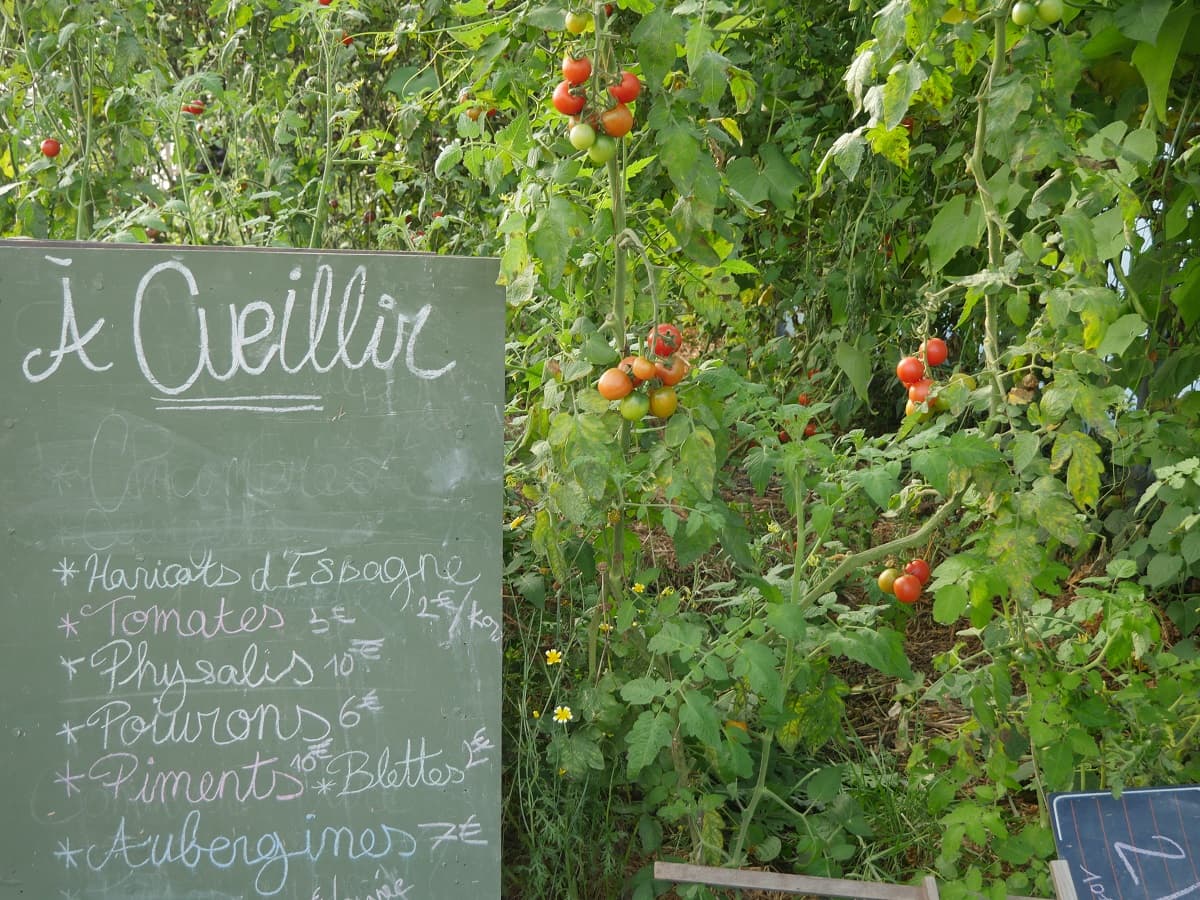 À Cueillir
* Concombres
* Haricots d'Espagne
2€/kg
* Tomates 5€
* Physalis 10€
* Poivrons 6€
* Piments 10€ * Blettes 2€
* Aubergines 7€